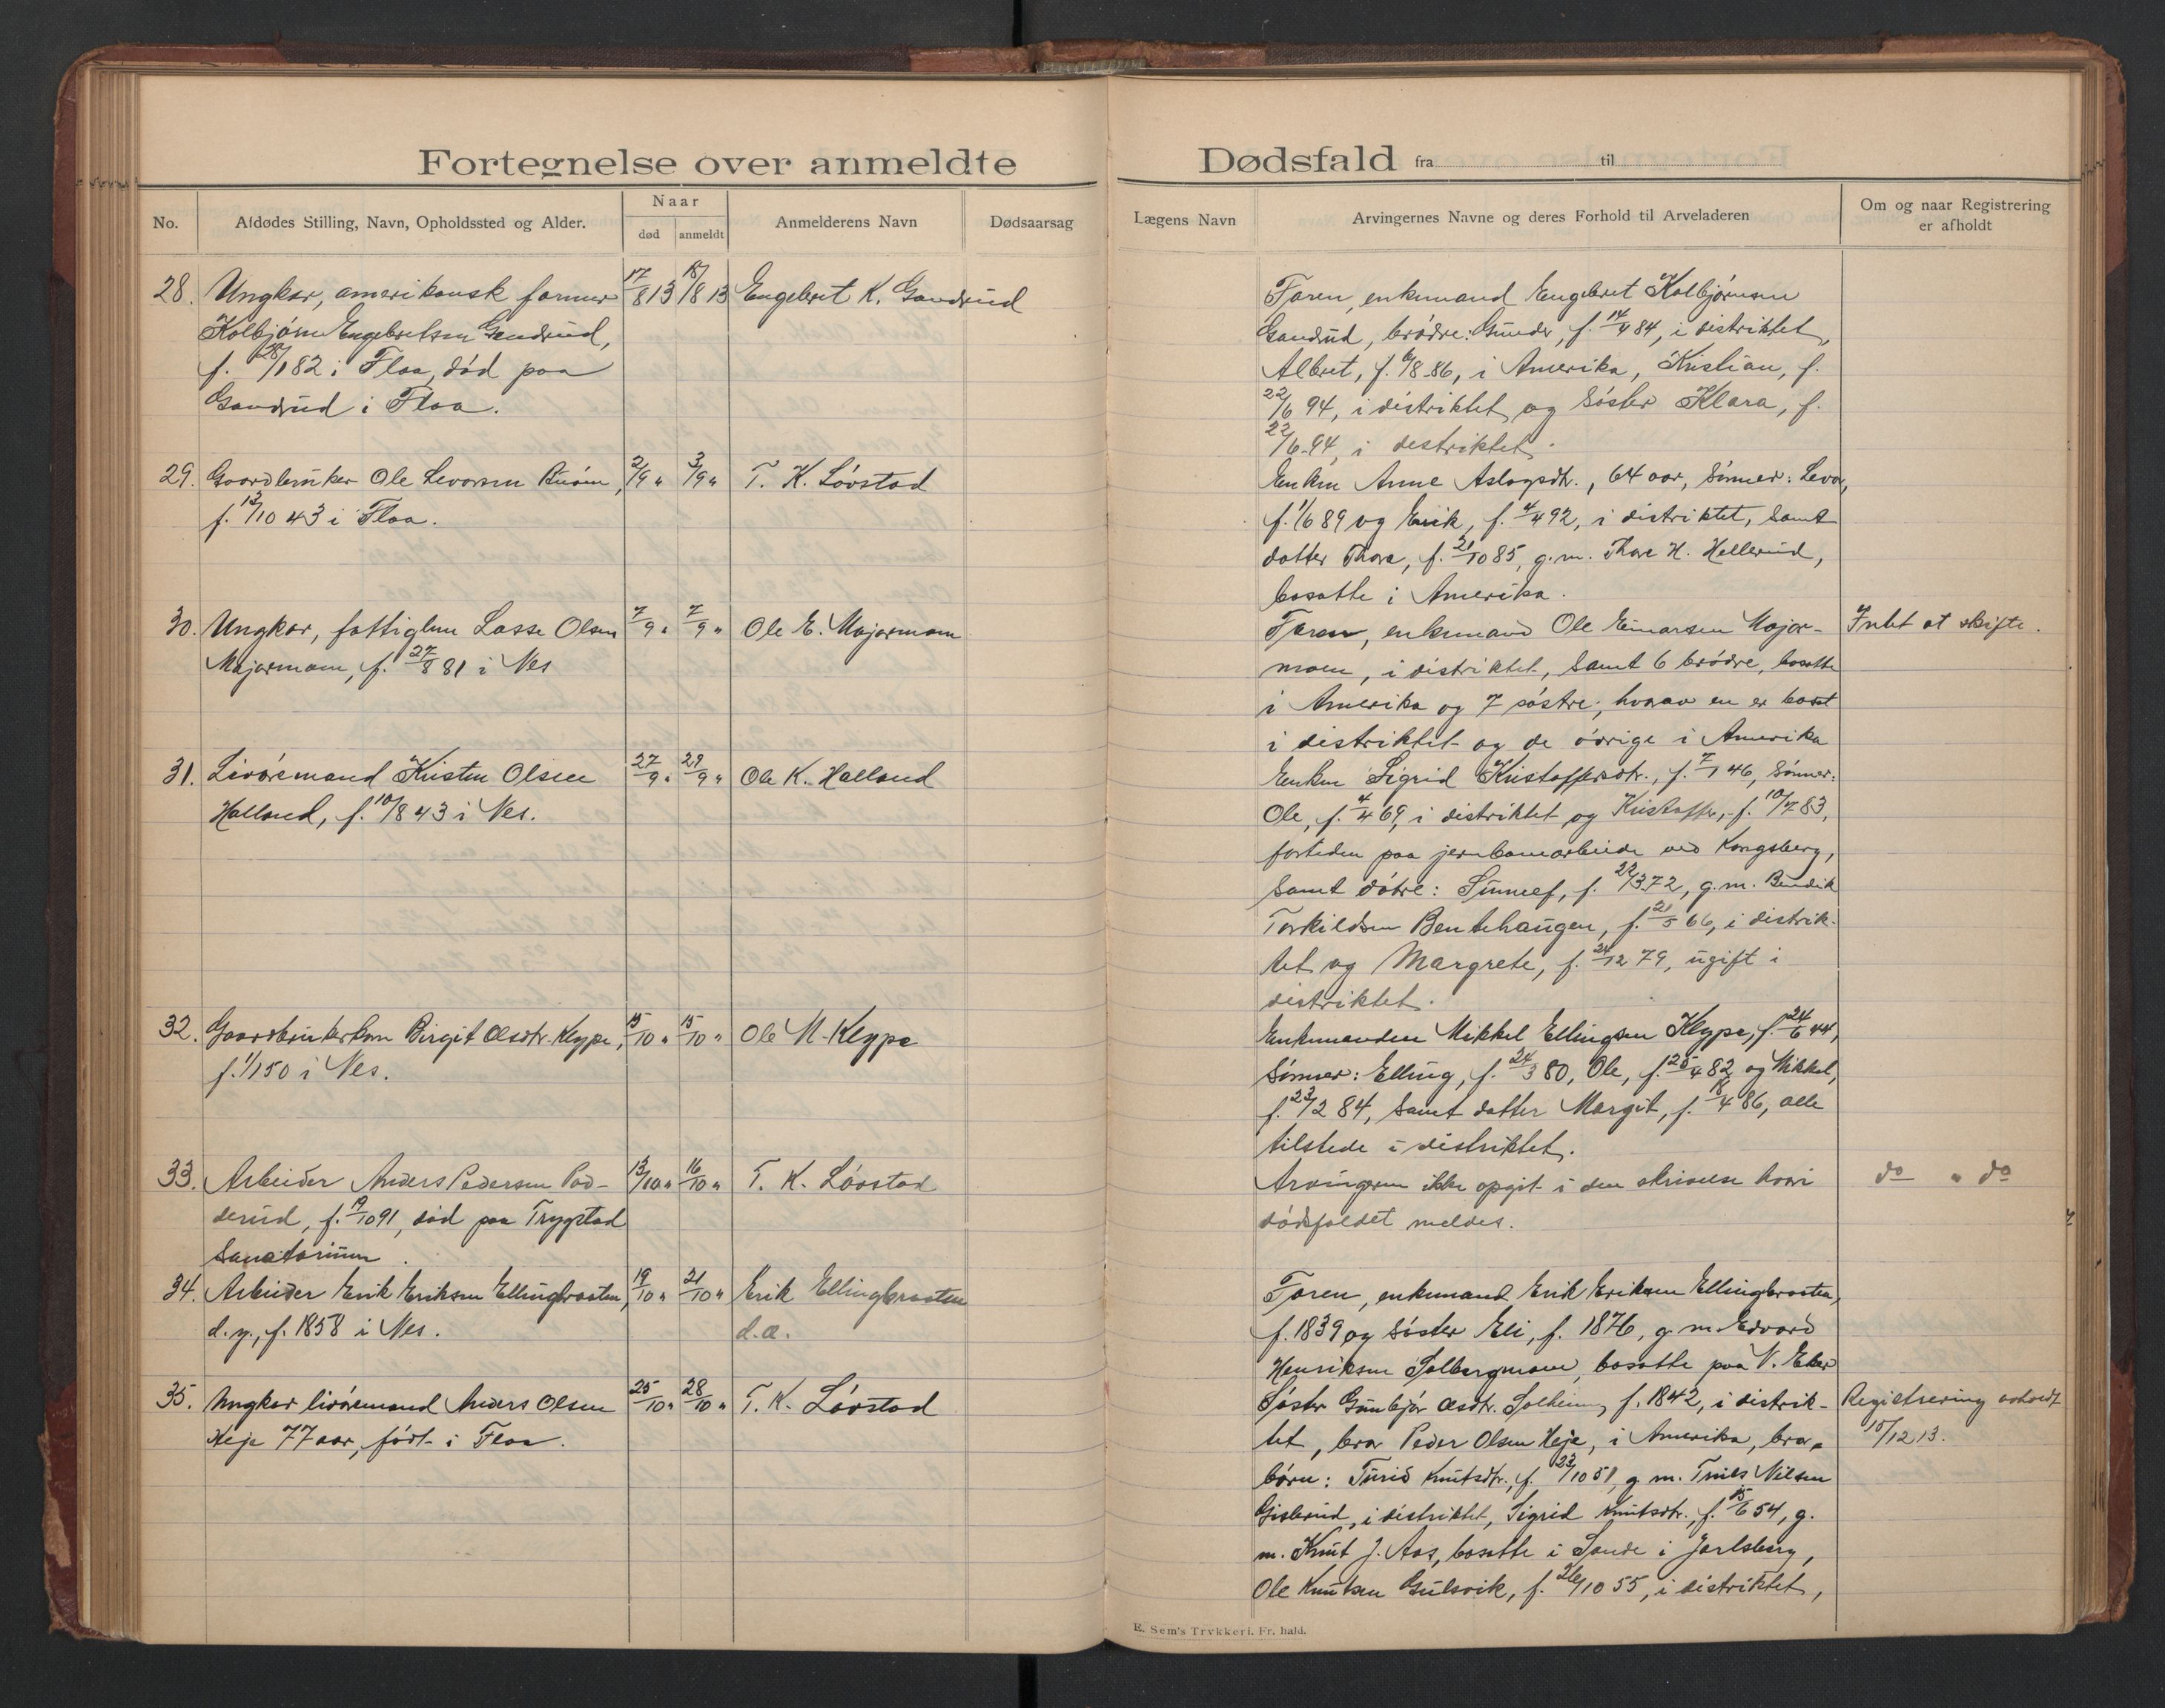 Fortegnelse over anmeldte Dødsfald fra til
No. Afdødes Stilling, Navn, Opholdssted og Alder. Naar død anmeldt Anmelderens Navn Dødsaarsag Lægens Navn Arvingernes Navne og deres Forhold til Arveladeren Om og naar Registrering er afholdt
28. Ungkar, amerikansk farmer 17/8 13 18/8 13 Engebret K. Gandrud
Kolbjørn Engebretsen Gandrud,
f. 28/1 82 i Flaa, død paa
Gandrud i Flaa.
Faren, enkemand Engebret Kolbjørnsen
Gandrud, brødre: Gunder, f. 14/4 84, i distriktet,
Albret, f. 6/8 86, i Amerika, Kristian, f.
22/6 94, i distriktet og søster Klara, f.
22/6 94, i destriktet.
29. Gaardbruker Ole Levorsen Ruøen, 2/9 " 3/9 " T. K. Løvstad
f. 13/10 43 i Flaa.
Enken Anne Aslagsdtr., 64 aar, sønner: Levor,
f. 1/6 89 og Erik, f. 4/4 92, i distriktet, samt
datter Thora, f. 21/10 85, g. m. Thore H. Hellerud,
bosatte i Amerika.
30. Ungkar, fattiglem Lasse Olsen 7/9 " 7/9 " Ole E. Majormoen
Majormoen, f. 27/8 81 i Nes
Faren, enkemand Ole Einarsen Major-
moen, i distriktet, samt 6 brødre, bosatte
i Amerika og 7 søstre, hvorav en er bosat
i distriktet og de øvrige i Amerika
Intet at skifte.
31. Livøremand Kristen Olsen 27/9 " 29/9 " Ole K. Halland
Halland, f. 10/8 43 i Nes.
Enken Sigrid Kristoffersdtr., f. 7/1 46, sønner:
Ole, f. 4/4 69, i distriktet og Kristoffer, f. 10/7 83,
fortiden paa jernbanearbeide ved Kongsberg,
samt døtre: Sünnef, f. 22/3 72, g. m. Bendik
Torkildsen Bentehaugen, f. 21/5 66, i distrik-
tet og Margrete, f. 24/12 79, ugift i
distriktet.
32. Gaardbrukerkone Birgit Olsdtr. Kleppe, 15/10 " 15/10 " Ole M. Kleppe
f. 1/1 50 i Nes.
Enkemanden Mikkel Ellingsen Kleppe, f. 24/6 44,
sønner: Elling, f. 24/3 80, Ole, f. 25/4 82 og Mikkel,
f. 23/2 84, samt datter Margit, f. 18/4 86, alle
tilstede i distriktet.
33. Arbeider Anders Pedersen Pod- 13/10 " 16/10 " T. K. Løvstad
derud, f. 19/10 91, død paa Trygstad
Sanatorium.
Arvingerne ikke opgit i den skrivelse hvori
dødsfaldet meldes.
do " do
34. Arbeider Erik Eriksen Ellingbraaten, 19/10 " 21/10 " Erik Ellingbraaten
d. y., f. 1858 i Nes. d. æ.
Faren, enkemand Erik Eriksen Ellingbraaten,
f. 1839 og søster Eli, f. 1876, g. m. Edvard
Henriksen Solbergmoen, bosatte paa V. Eker
35. Ungkar livøremand Anders Olsen 25/10 " 28/10 " T. K. Løvstad
Heje 77 aar, født i Flaa.
Søster Gunbjør Olsdtr. Solheim, f. 1842, i distrik-
tet, bror Peder Olsen Heje, i Amerika, bror-
børn: Turid Knutsdtr., f. 23/10 51, g. m. Truls Nilsen
Gislerud, i distriktet, Sigrid Knutsdtr., f. 15/6 54, g.
m. Knut J. Aas, bosatte i Sande i Jarlsberg,
Ole Knutsen Gulsvik, f. 26/10 55, i distriktet,
Registrering avholdt
10/12 13.
E. Sem's Trykkeri. Fr. hald.